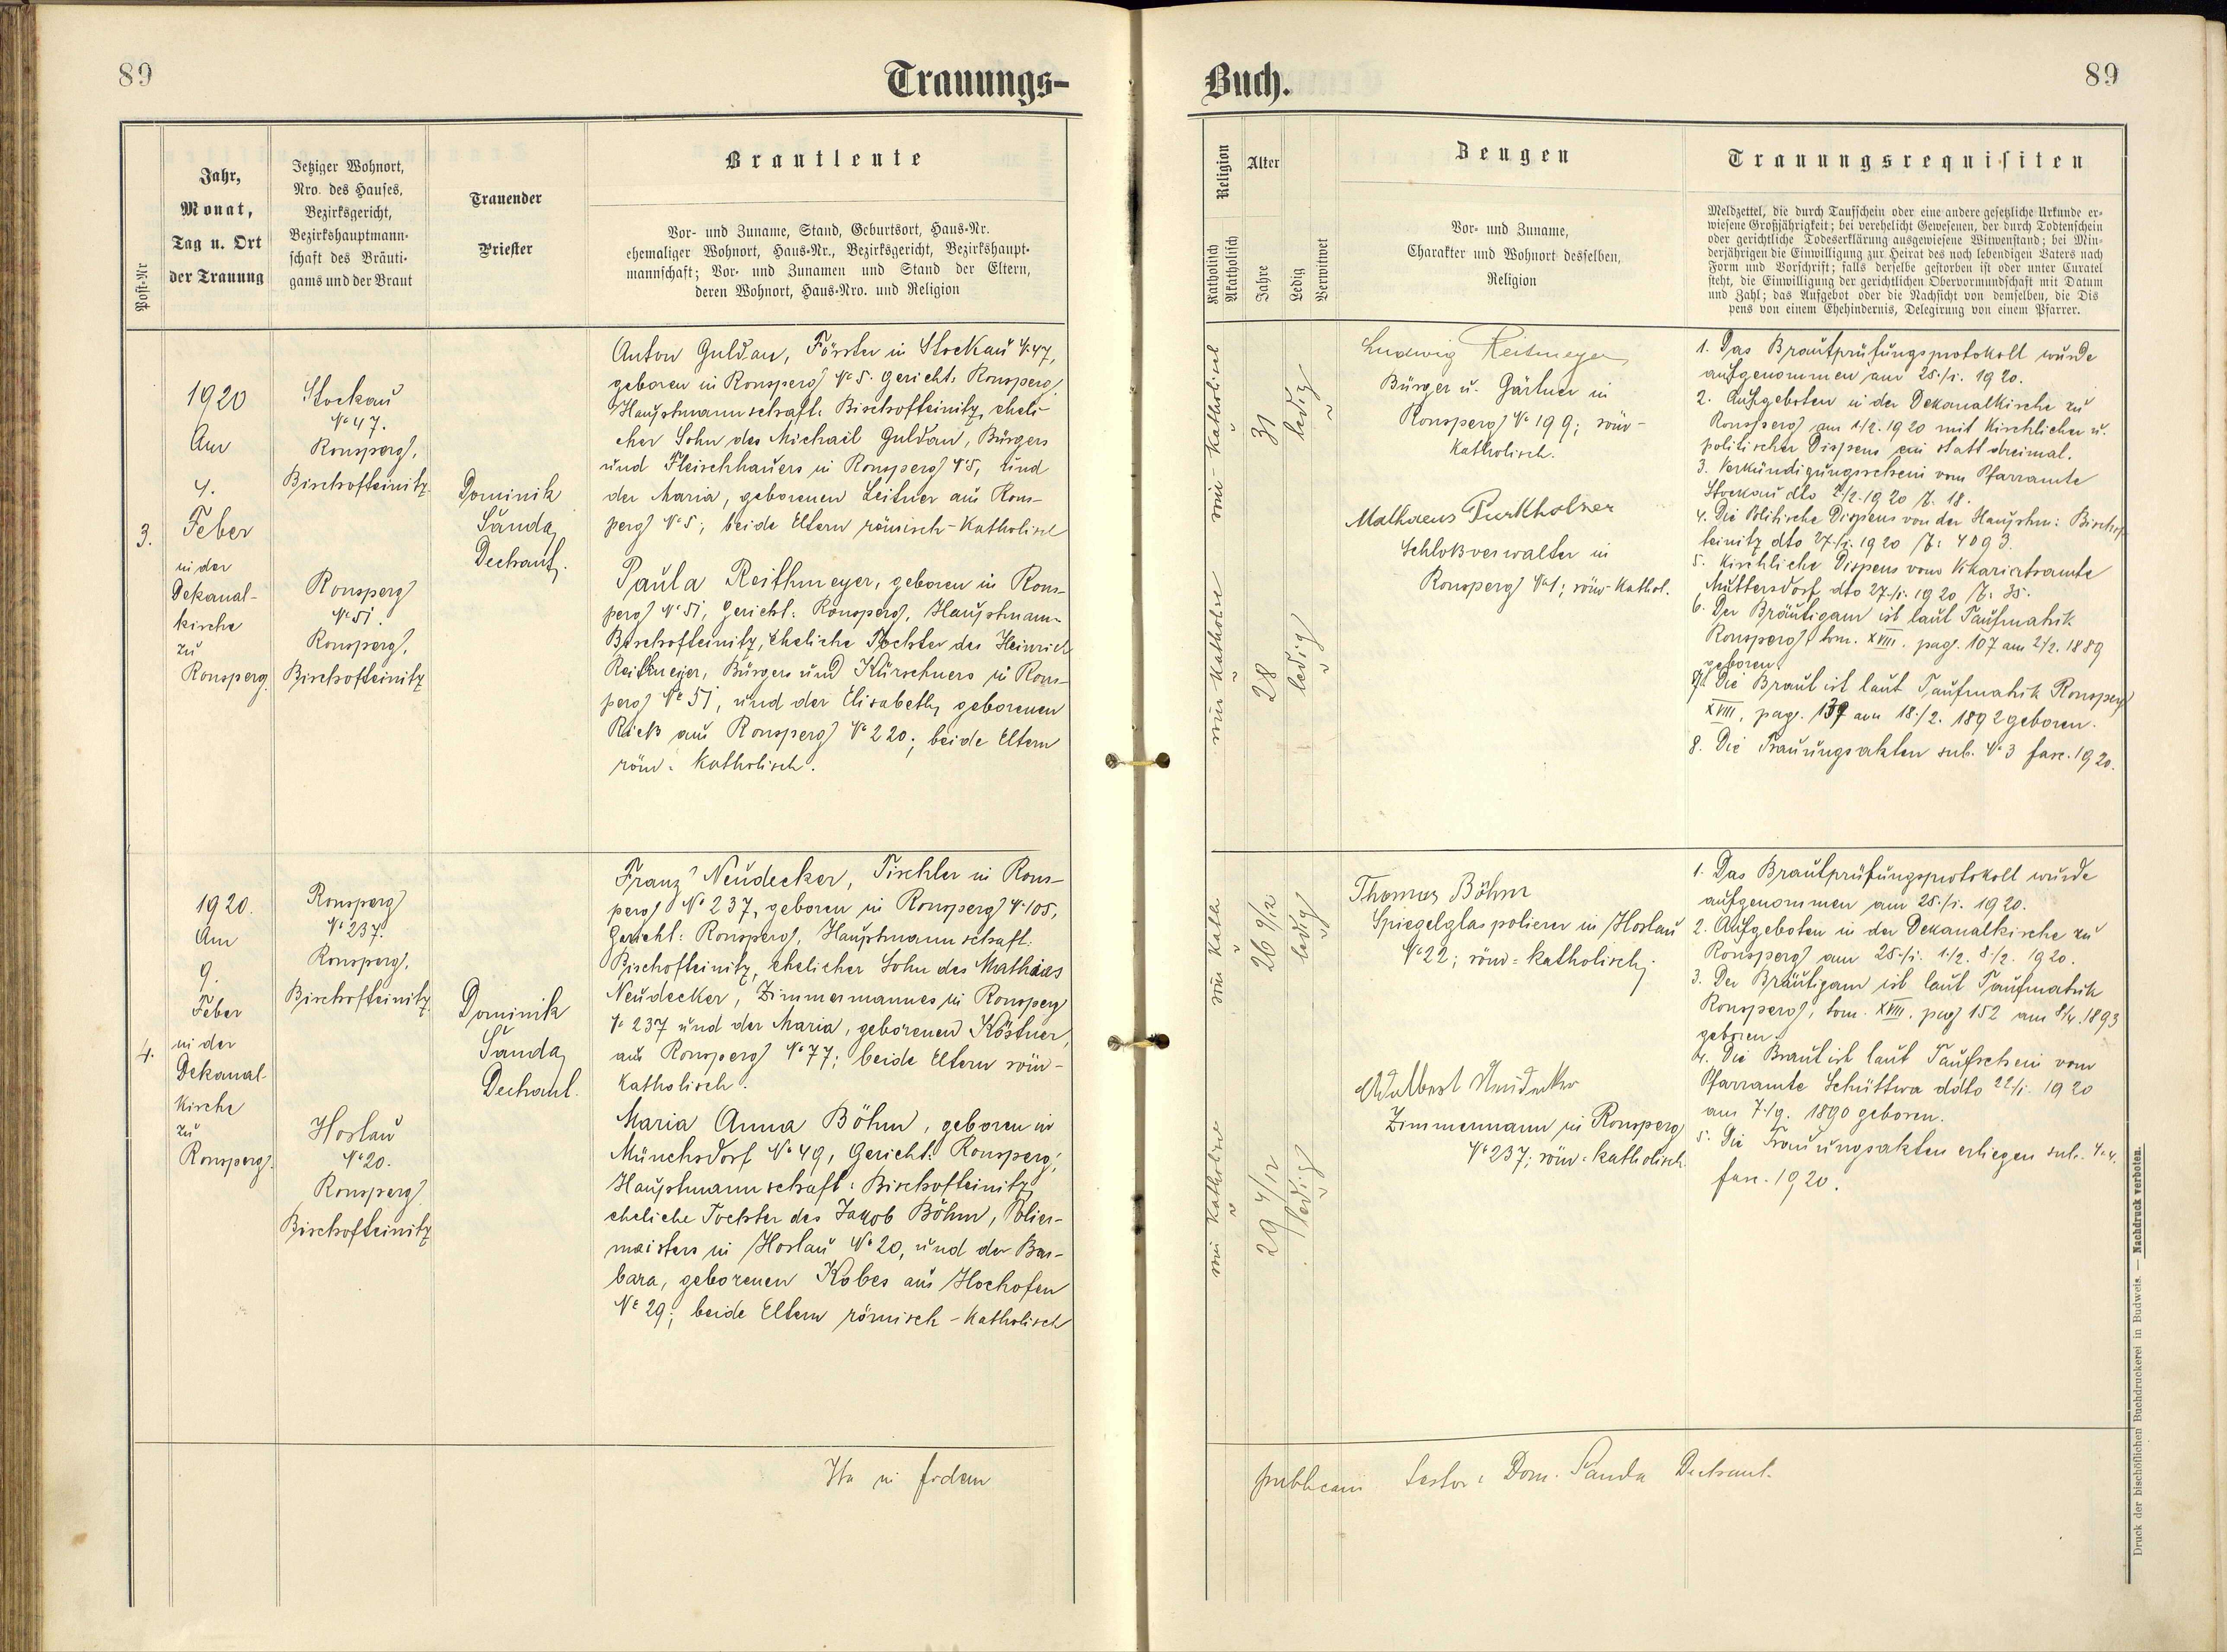 89
Trauungs-
Post-Nr
Jahr,
Monat,
Tag u. Ort
der Trauung
Jetziger Wohnort,
Nro. des Hauses,
Bezirksgericht,
Bezirkshauptmann-
schaft des Bräuti-
gams und der Braut
Trauender
Priester
Brautleute
Vor- und Zuname, Stand, Geburtsort, Haus-Nr.
ehemaliger Wohnort, Haus-Nr., Bezirksgericht, Bezirkshaupt-
mannschaft; Vor- und Zunamen und Stand der Eltern,
deren Wohnort, Haus-Nro. und Religion
3.
1920
Am
4.
Feber
in der
Dekanal-
kirche
zu
Ronsperg.
Stockau
№ 47.
Ronsperg,
Bischofteinitz
Ronsperg
№ 51.
Ronsperg,
Bischofteinitz
Dominik
Šanda,
Dechant.
Anton Guldan, Förster in Stockau № 47,
geboren in Ronsperg № 5. Gericht: Ronsperg,
Hauptmannschaft: Bischofteinitz, eheli-
cher Sohn des Michael Guldan, Bürgers
und Fleischhauers in Ronsperg № 5, und
der Maria, geborenen Leitner aus Rons-
perg № 5; beide Eltern römisch-katholisch
Paula Reithmeyer, geboren in Rons-
perg № 51, Gericht: Ronsperg, Hauptmann-
Bischofteinitz, eheliche Tochter des Heinrich
Reithmeyer, Bürgers und Kürschners in Rons-
perg № 51, und der Elisabeth, geborenen
Rieß aus Ronsperg № 220; beide Eltern
röm: katholisch.
4.
1920.
Am
9.
Feber
in der
Dekanal-
kirche
zu
Ronsperg.
Ronsperg
№ 237.
Ronsperg,
Bischofteinitz
Hostau
№ 20.
Ronsperg
Bischofteinitz
Dominik
Šanda,
Dechant.
Franz Neudecker, Tischler in Rons-
perg № 237, geboren in Ronsperg № 105,
Gericht: Ronsperg, Hauptmannschaft:
Bischofteinitz, ehelicher Sohn des Mathias
Neudecker, Zimmermannes in Ronsperg
№ 237 und der Maria, geborenen Köstner,
aus Ronsperg № 77; beide Eltern röm-
katholisch.
Maria Anna Böhm, geboren in
Münchsdorf № 49, Gericht: Ronsperg,
Hauptmannschaft: Bischofteinitz,
eheliche Tochter des Jakob Böhm, Polier-
meisters in Hostau № 20, und der Bar-
bara, geborenen Kobes aus Hochofen
№ 29; beide Eltern römisch-katholisch
Ita in fidem
Buch.
89
Religion
Katholisch
Akatholisch
Alter
Jahre
Ledig
Verwitwet
Zeugen
Vor- und Zuname,
Charakter und Wohnort desselben,
Religion
Trauungsrequisiten
Meldzettel, die durch Taufschein oder eine andere gesetzliche Urkunde er-
wiesene Großjährigkeit; bei verehelicht Gewesenen, der durch Todtenschein
oder gerichtliche Todeserklärung ausgewiesene Witwenstand; bei Min-
derjährigen die Einwilligung zur Heirat des noch lebendigen Vaters nach
Form und Vorschrift; falls derselbe gestorben ist oder unter Curatel
steht, die Einwilligung der gerichtlichen Obervormundschaft mit Datum
und Zahl; das Aufgebot oder die Nachsicht von demselben, die Dis
pens von einem Ehehindernis, Delegirung von einem Pfarrer.
31
ledig
28
ledig
Ludwig Reitmeyer,
Bürger u. Gärtner in
Ronsperg № 199; röm-
katholisch.
Mathaeus Purkholzer
Schloßverwalter in
Ronsperg № 1; röm-kathol.
1. Das Brautprüfungsprotokoll wurde
aufgenommen am 25./i. 1920.
2. Aufgeboten in der Dekanalkirche zu
Ronsperg am 1/2. 1920 mit kirchlicher u.
politischer Dispens ein statt dreimal.
3. Verkündigungsschein vom Pfarramte
Stockau dto 2/2. 1920 Z. 18.
4. Die Politische Dispens von der Hauptm: Bischof-
teinitz dto 27./i. 1920 Z: 4093.
5. Kirchliche Dispens vom Vikariatsamte
Muttersdorf dto 27./i. 1920, Z. 35.
6. Der Bräutigam ist laut Taufmatrik
Ronsperg, tom. XVIII. pag. 107 am 2/2. 1889
geboren.
7. Die Braut ist laut Taufmatrik Ronsperg
XVIII, pag. 139 am 18./2. 1892 geboren.
8. Die Trauungsakten sub. № 3 fasc. 1920.
26 9/12
ledig
29 4/12
ledig
Thomas Böhm
Spiegelglaspolierer in Hostau
№ 22; röm=katholisch.
Adalbert Neudecker
Zimmermann in Ronsperg
№ 237; röm=katholisch.
1. Das Brautprüfungsprotokoll wurde
aufgenommen am 25./i. 1920.
2. Aufgeboten in der Dekanalkirche zu
Ronsperg am 25./i. 1./2. 8./2. 1920.
3. Der Bräutigam ist laut Taufmatrik
Ronsperg, tom. XVIII. pag 152 am 8/4. 1893
geboren.
4. Die Braut ist laut Taufschein vom
Pfarramte Schüttwa ddto 22/i. 1920
am 7./9. 1890 geboren.
5. Die Trauungsakten erliegen sub. № 4.
fasc. 1920.
publicam testor: Dom. Šanda Dechant.
Druck der bischöflichen Buchdruckerei in Budweis. — Nachdruck verboten.